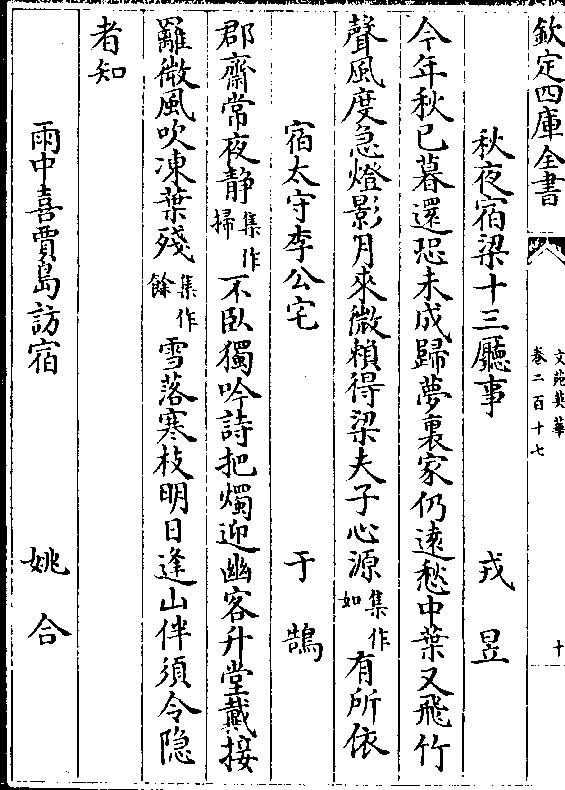 欽定四庫全書
文苑英華
卷二百十七
十
秋夜宿梁十三廳事 戎昱
今年秋已暮還恐未成歸夢裏家仍遠愁中葉又飛竹
聲風度急燈影月來微賴得梁夫子心源集作如有所依
宿太守李公宅 于鵠
郡齋常夜靜集作掃不臥獨吟詩把燭迎幽客升堂戴接
䍦微風吹凍葉殘集作餘雪落寒枝明日逢山伴須令隐
者知
雨中喜賈島訪宿 姚合